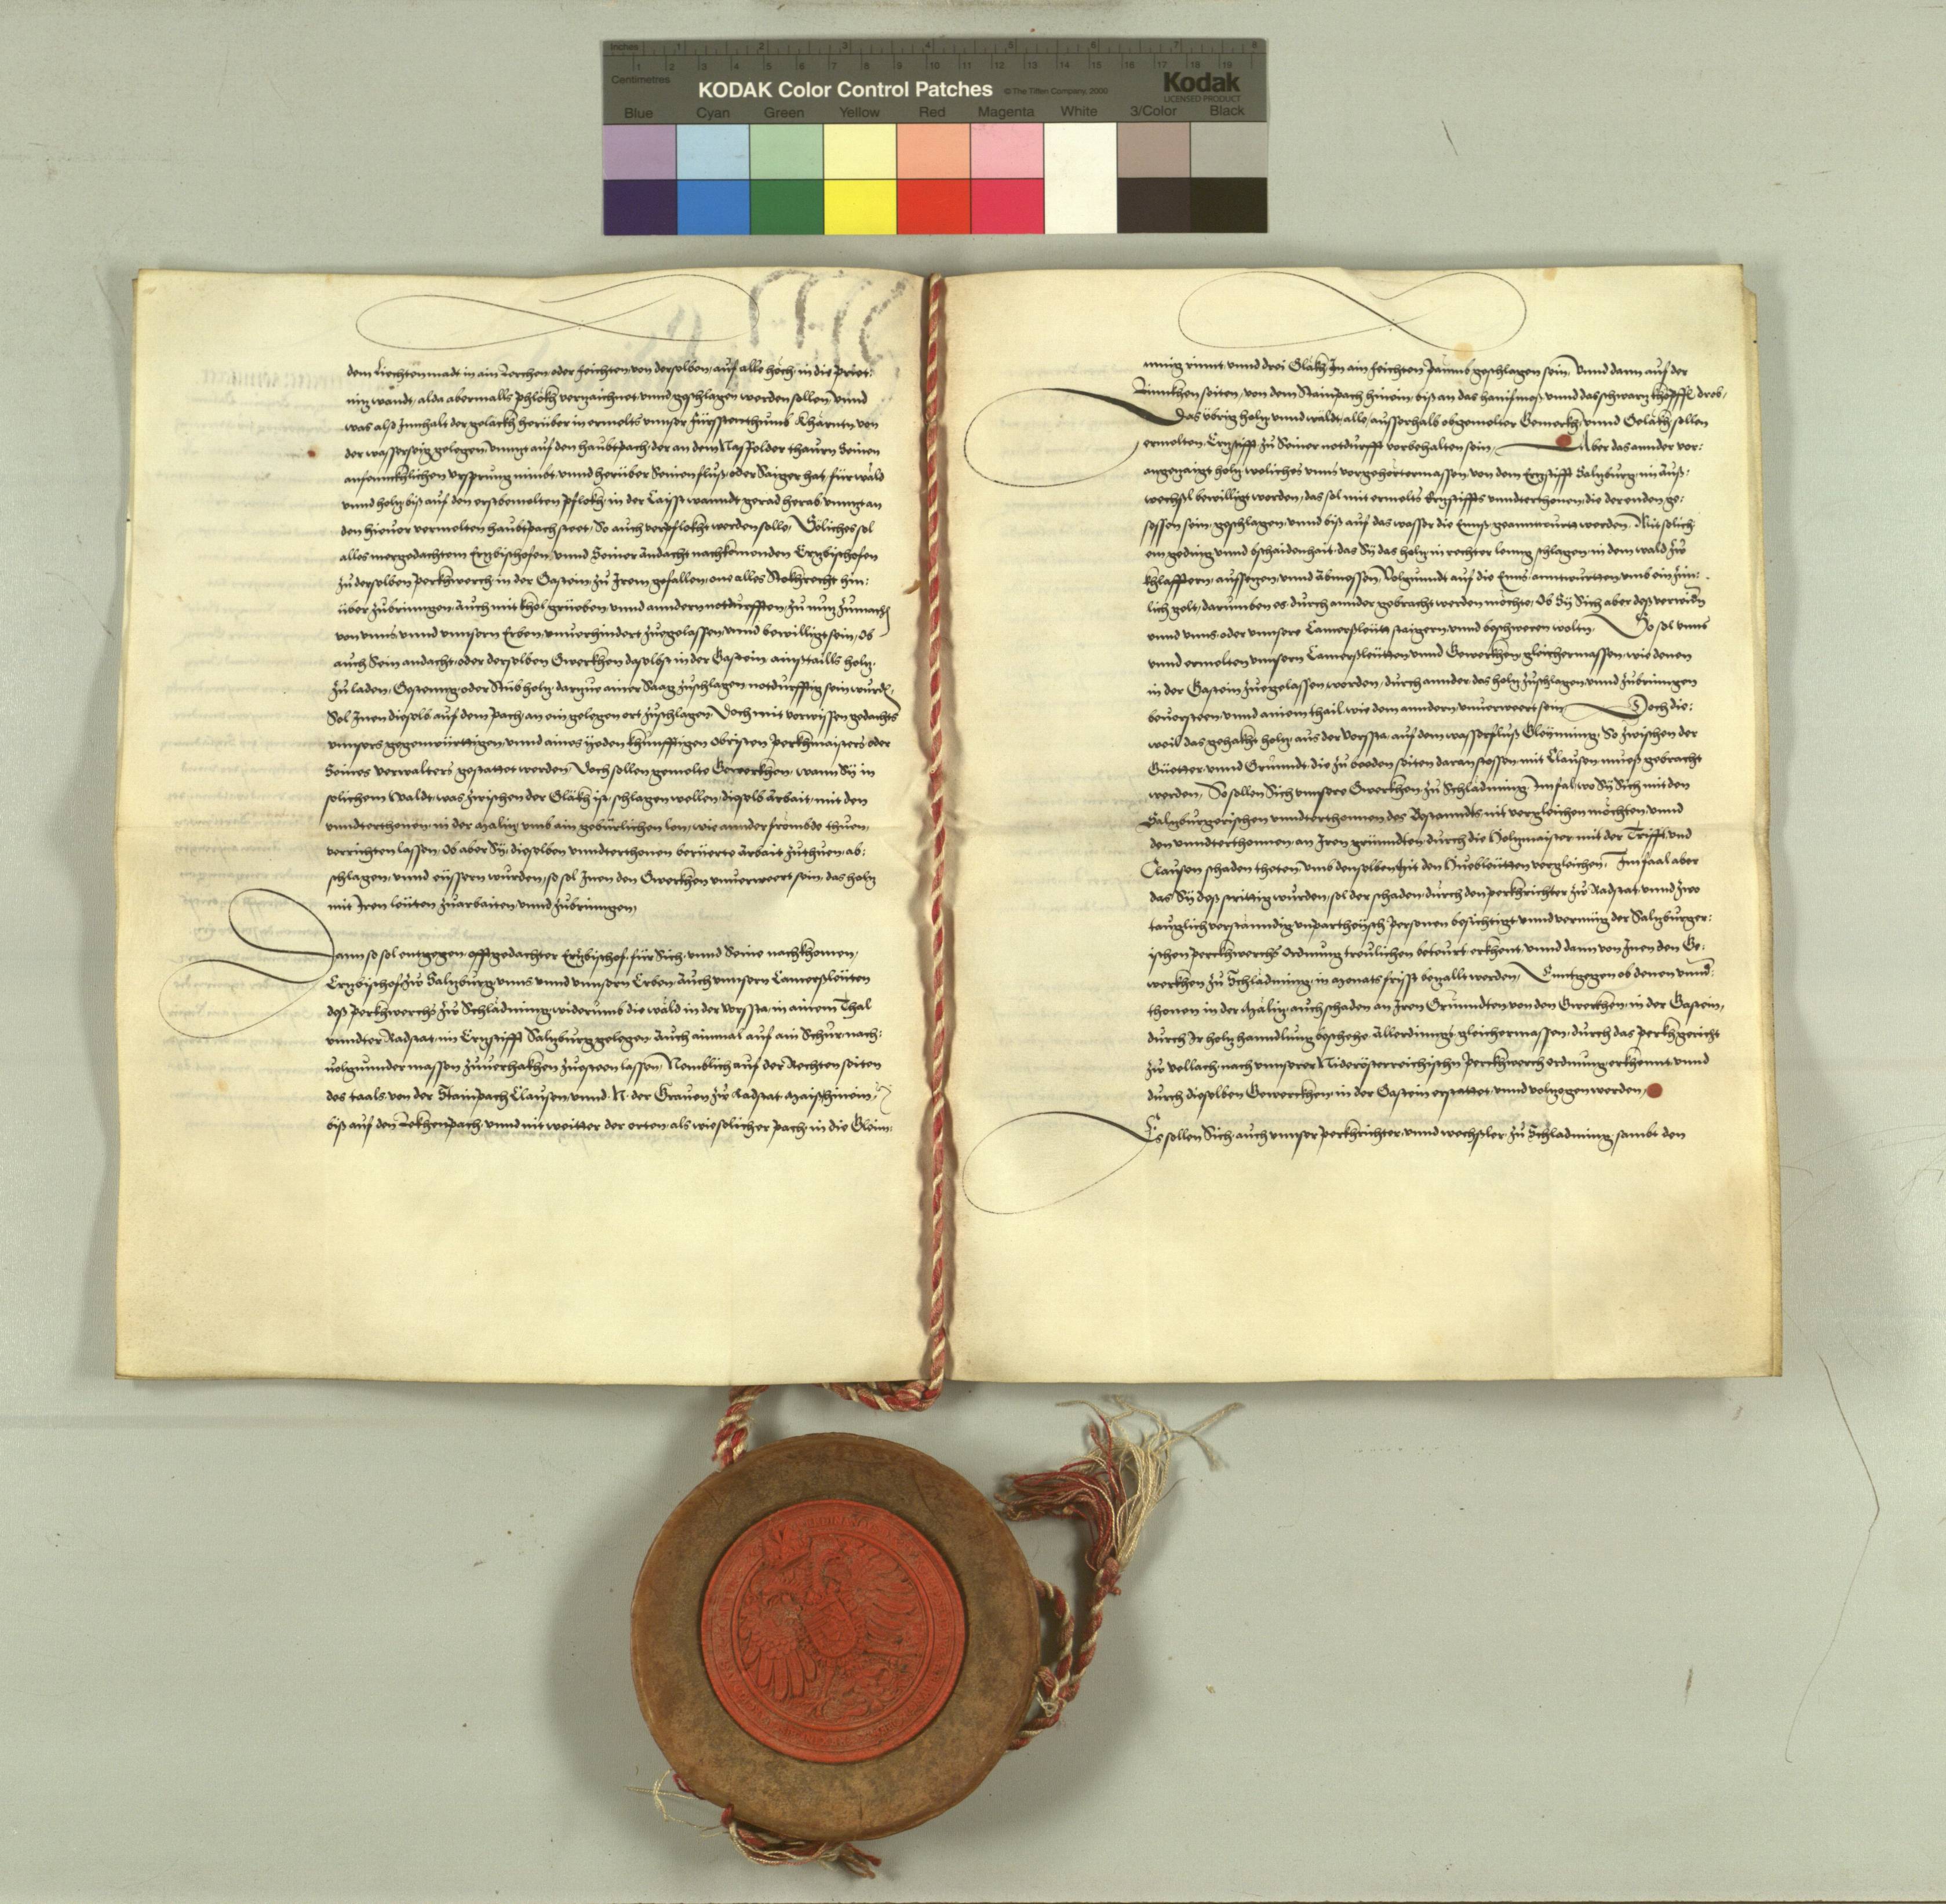 Inches 1 2 3 4 5 6 7 8
1 2 3 4 5 6 7 8 9 10 11 12 13 14 15 16 17 18 19
Centimetres
KODAK Color Control Patches © The Tiffen Company, 2000 Kodak
LICENSED PRODUCT
Blue Cyan Green Yellow Red Magenta White 3/Color Black
dem Liechtenmadt in ain Lerchen oder Feichten von derselben auf alle höch in die
wandt, alda abermalls Phlökh verzaichnet vnnd geschlagen werden sollen vnnd
was alß Innhalt der gelackh herüber in ermelts vnnser Fürsstenthumb Khärntn von
der wassersaig gelegen, vnnzt auf den haubtpach, der an dem Nassfelder thaurn Seinen
anfenncklichen vrsprung nimbt vnnd herüber Seinen fluß oder Saiger hat, für wäld
vnnd holz biß auf den erstbemelten Pflokh in der wanndt gerad herab vnnzt an
den hieuor vermelten haubtpach steet, So auch verpflokht werden solle, Söliches sol
alles mergedachtem Erzbischofen, vnnd Seiner andacht nachkomenden Erzbischofen
zu derselben Perkhwerch in der Gastein, zu Irem gefallen, one alles Stokhrecht hin:
über zubringen, auch mit khol grüeben vnnd anndern notdurfften, zu nuz zumachen
von vnns vnnd vnnsern Erben, vnuerhindert zuegelassen, vnnd bewilligt sein, Ob
auch Sein andacht, oder derselben Gwerkhen daselbst in der Gastein ainsstaills holz,
zu laden, oder Stub holz, darzue ainer Saag zuschlagen notdurfftig sein wurdn,
Sol Inen dieselb auf dem Pach, an ein gelegen ort zuschlagen, Doch mit vorwissen gedachts
vnnsers gegenwürttigen, vnnd aines yeden khünfftigen Obristen Perkhmaisters oder
Seines verwalters gestattet werden, Doch sollen gemelte Gewerkhen, wann Sy in
solichem Waldt, was zwischen der Gläkh ist, schlagen wellen, dieselb arbait, mit den
vnndterthonen in der Maliz vmb ain gebürlichen lon, wie annder frömbde thuen,
verrichten lassen, Ob aber Sy, dieselben vnndterthonen berüerte arbait zuthuen, ab:
schlagen, vnnd eüssern wurden, so sol Inen den Gwerkhen vnuerweert sein, das holz
mit Iren leüten zuarbaiten vnnd zubringen,
Dann so sol entgegen offtgedachter Erzbischof, für Sich, vnnd Seine nachkhomen,
Erzbischof zw Salzburg, vnns vnnd vnnsern Erben, Auch vnnsern Camersleüten
deß Perkhwerchs zw Schladming widerumb die wäld in der Vorsta, in ainem Thal
vnndter Radstat, im Erzstifft Salzburg gelegen, Auch ainmal auf ain Schur, nach:
uolgunnder massen zuuerhakhen zuesteen lassen, Nemblich auf der Rechten seiten
des taals von der Stainpach Clausen, vnnd N. der Grauen zw Radstat hinein,
biß auf den Lekhenpach, vnnd nit weitter der orten, als wie solicher Pach in die Glein:
ning rinnt, vnnd drei Gläkh In ain feichten Paumb geschlagen sein, Vnnd dann auf der
Linnkhen seiten, von dem Stainpach hinein, biß an das vnnd das schwarz khöpffl, drob,
Das übrig holz, vnnd wäldt alle, ausserhalb obgemelter Gemerkh, vnnd Geläkh, sollen
ermelten Erzstifft zu Seiner notdurfft vorbehalten sein, Aber das annder vor:
angezaigt holz, weliches vnns vorgehörtermassen von dem Erzstifft Salzburg, im auß:
wechsl bewilligt worden, das sol mit ermelts Erzstiffts vnndterthonen, die der enden ge:
sessen sein, geschlagen, vnnd biß auf das wasser die Ennß geanntwurt werden, Mit solich
em geding vnnd bschaidenhait, das Sy das holz, in rechter lenng schlagen, in dem wald zw
khlafftern, aussezen, vnnd abmessen, Volgunndt auf die Enns, anntwurtten, vmb ein zim:
lich gelt, darumben es durch annder gebracht werden möchte, Ob Sy Sich aber deß verwidern
vnnd vnns, oder vnnsere Camerßleüt staigern, vnnd beschweren woltn, So sol vnns
vnnd ermelten vnnsern Camerßleütten vnnd Gewerkhen, gleichermassen, wie denen
in der Gastein zuegelassen worden, durch annder das holz zuschlagen vnnd zubringen
beuorsteen, vnnd ainem thail, wie dem anndern vnuerweert sein, Doch die:
weil das gehakht holz, aus der Vorsta, auf dem wasserfluß Gleynning, So zwischen der
Güetter vnnd Grunndt, die zu beeden seiten daran stossen, mit Clausen mueß gebracht
werden, So sollen Sich vnnsere Gwerkhen zu Schladming, Im fal, wo Sy Sich mit den
Salzburgerischen vnndterthonnen des Bestanndts nit vergleichen möchten, vnnd
den vnndterthonnen, an Iren gründten, durch die Holzmaister mit der Trifft vnd
Clausen schaden theten, vmb denselben mit den Huebleütten vergleichen, Im faal aber
das Sy deß strittig wurden, sol der schaden durch den Perkhrichter zw Radstat, vnnd zwo
tauglich verstanndig vnpartheyisch Personen besichtigt, vnnd vermüg der Salzburger:
ischen Perckhwerchs Ordnung treulichen beteurt, erkhent, vnnd dann von Inen den Ge:
werkhen zu Schladming, in monats frisst bezallt werden, Enntgegen ob denen vnnd:
thonen in der Maliz, auch schaden an Iren Grunndten von den Gwerkhen in der Gastein,
durch Ir holz hanndlung bschehe, Allerdinngs gleichermassen, durch das Perkhgericht
zw Vellach, nach vnnserer Niderösterreichischn Perckhwerch ordnung erkhennt, vnnd
durch dieselben Gewerckhen in der Gastein erstattet, vnnd volzogen werden,
Es sollen Sich auch vnnser Perkhrichter, vnnd wechsler, zu Schladming, sambt den